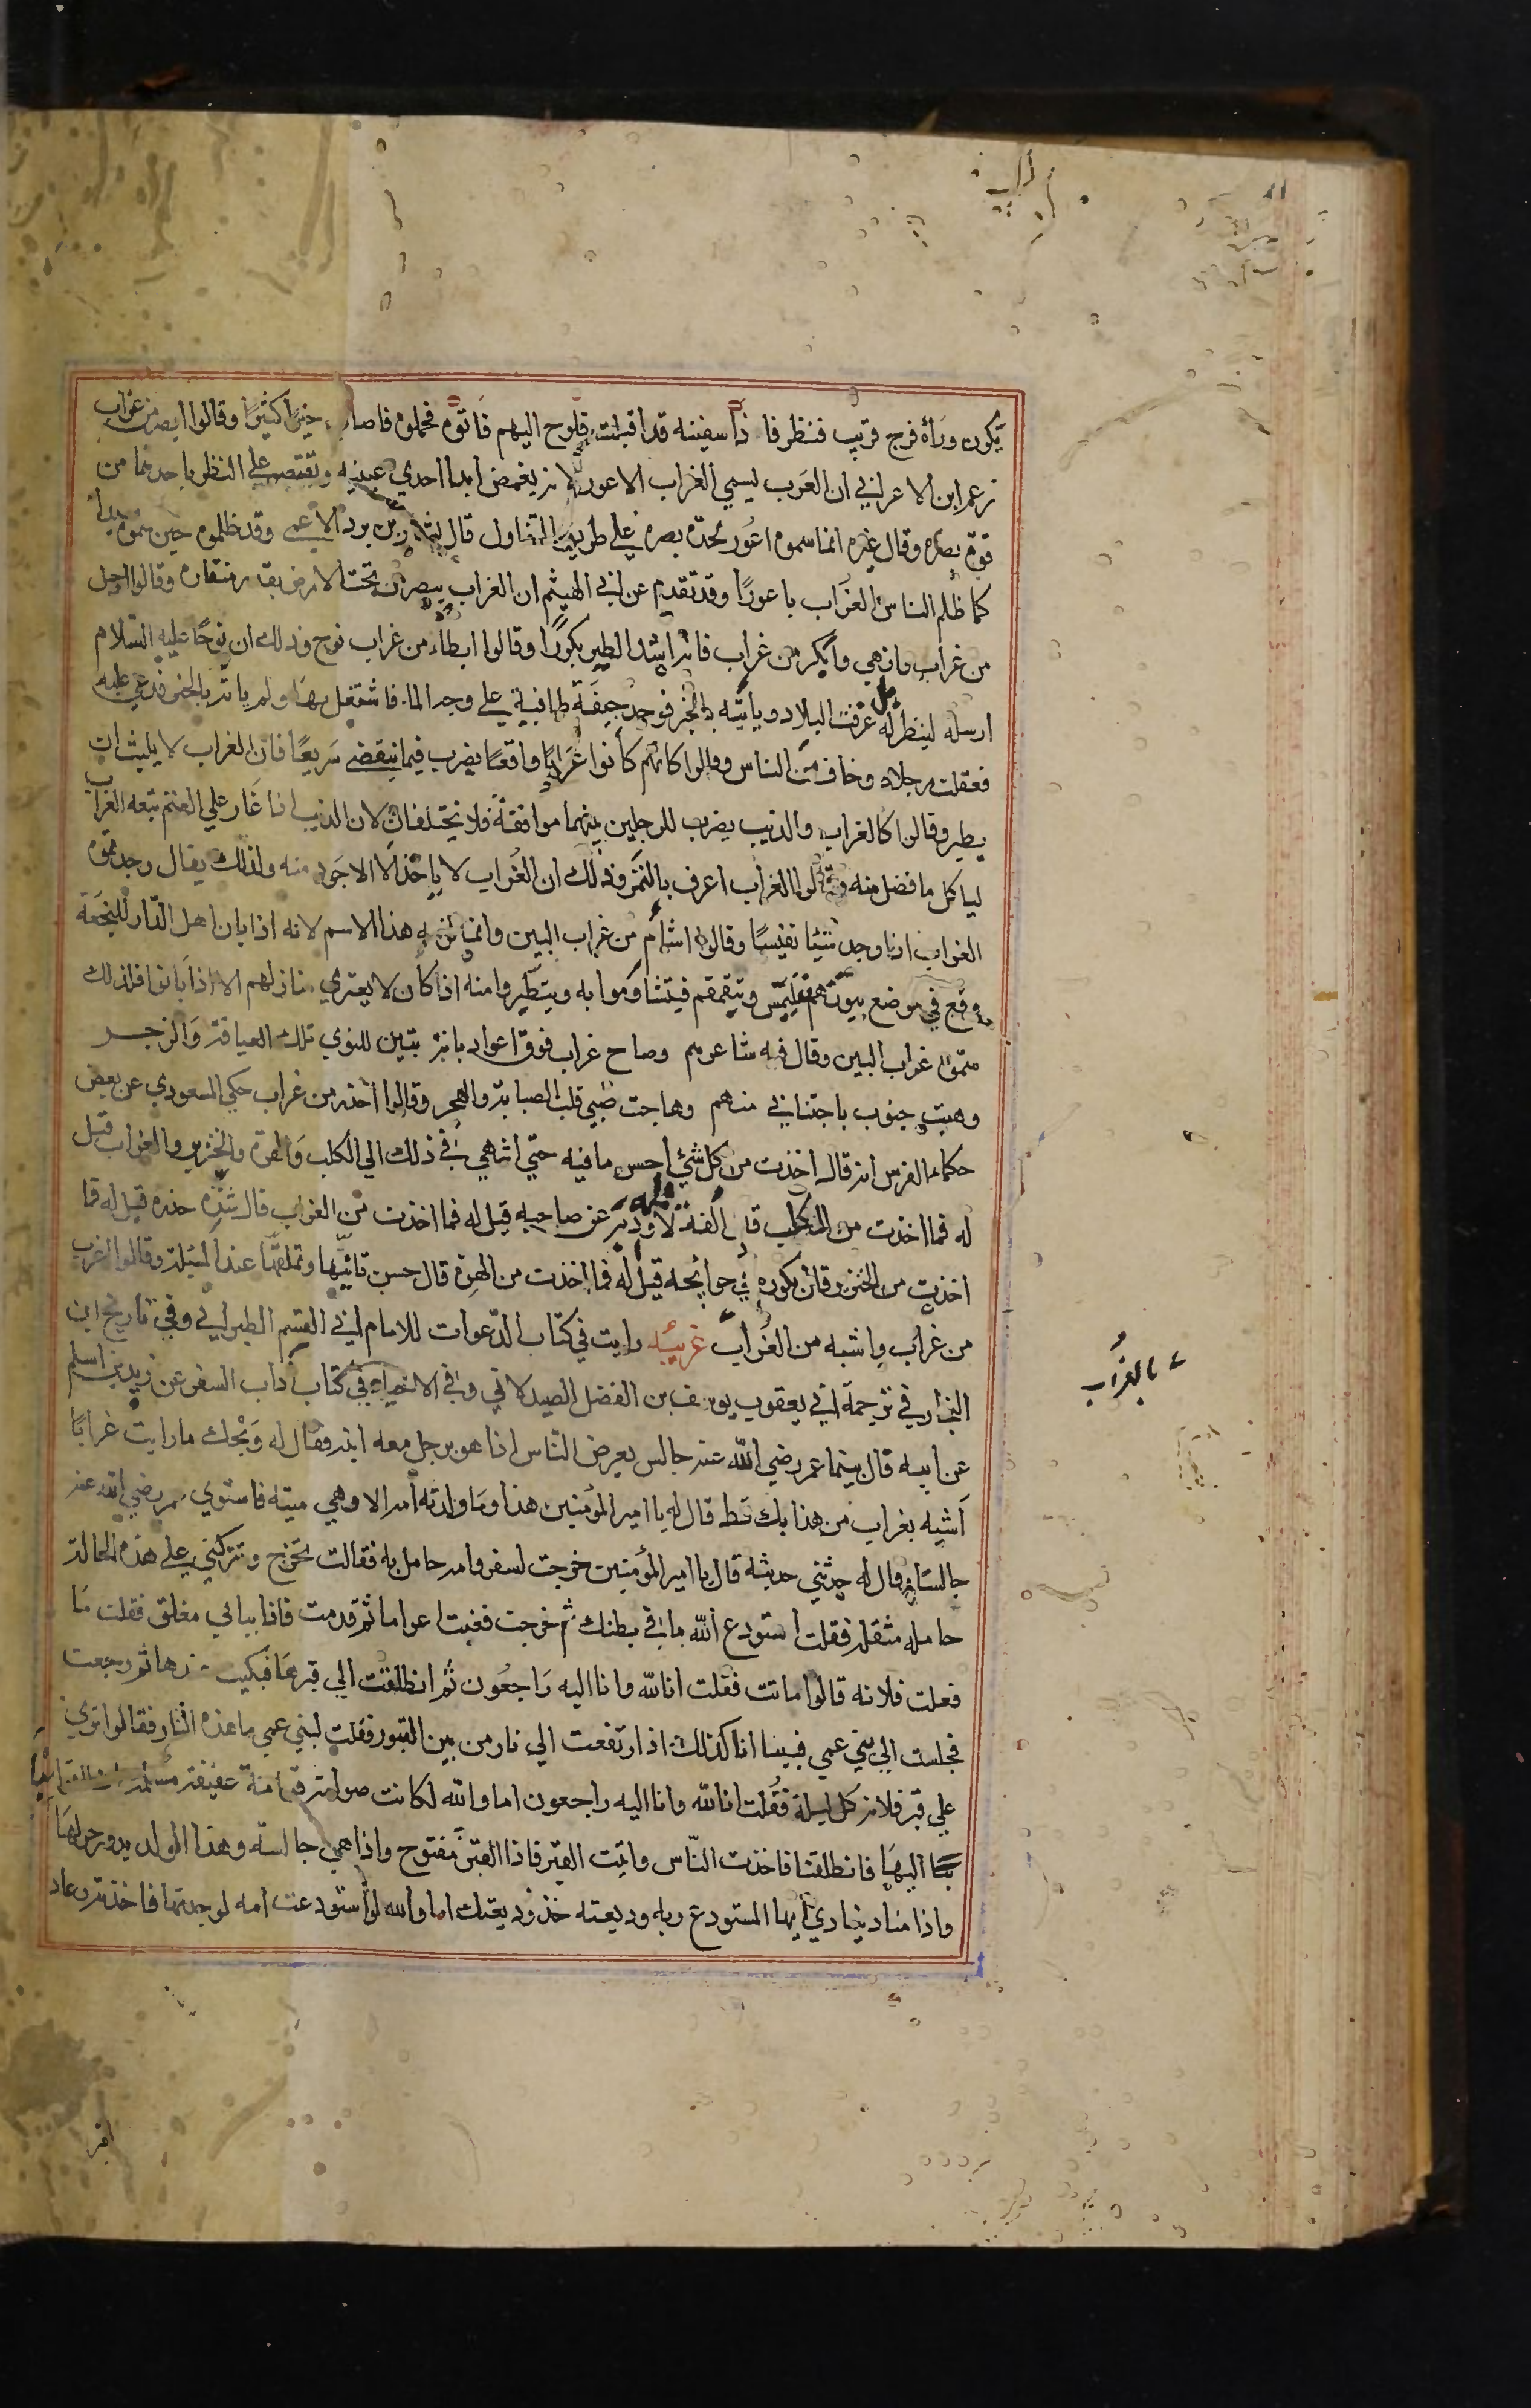 يكون ورأه فرج قريب فنظر فا ذا سفينه قد اقبلت فلوح اليهم فاتوه فحملوه فاصاب خيرًا كثيرًا وقالوا ابصر من غراب
زعم ابن الاعرابي ان العرب تسمي الغراب الاعور لانه يغمض ابدا احدي عينيه ويقتصر علي النظر باحدهما من
قوة بصره وقال غيره انما سموه اعور لحدة بصره علي طريق التفاول قال بشار بن برد الاعمي وقد ظلموه حين سموه سيدا
كما ظلم الناس الغراب باعورا وقد تقدم عن ابي الهيثم ان الغراب يبصر من تحت الارض بقدر منقاره وقالوا اخيل
من غراب وازهي وابكر من غراب فانه اشد الطير بكورًا وقالوا ابطاء من غراب نوح وذلك ان نوحًا عليه السلام
ارسله لينظر هل غرقت البلاد وياتيه بالخبر فوجد جيفة طافية علي وجه الماء فاشتغل بها ولم ياته بالخبر فدعي عليه
فعقلت رجلاه وخاف من الناس وقالوا كانهم كانوا غرابًا واقعًا يضرب فيما ينقضي سريعًا فان الغراب لا يلبث ان
يطير وقالوا كالغراب والذيب يضرب للرجلين بينهما موافقة فلا يختلفان لان الذيب اذا غار علي الغنم تبعه الغراب
لياكل ما فضل منه وقالوا الغراب اعرف بالتمر وذلك ان الغراب لا ياخذ الا الاجود منه ولذلك يقال وجد تمرة
الغراب اذا وجد شيئا نفيسًا وقالوا اشام من غراب البين وانما لزمه هذا الاسم لانه اذا بان اهل الدار للنجعة
وقع في موضع بيوتهم يتلمس ويتقمقم فيتشاوموا به ويتطيروا منه اذا كان لا يعتري منازلهم الا اذا بانوا فلذلك
سموه غراب البين وقال فيه شاعرهم وصاح غراب فوق اعواد بانة تبين للنوي تلك العيافة والزجر
وهبت جنوب باجتنابي منهم وهاجت صبي قلت الصبابة والهجر وقالوا احذر من غراب حكي المسعودي عن بعض
حكماء الفرس انه قال اخذت من كل شيء احسن ما فيه حتي انتهي بي في ذلك الي الكلب والهرة والخنزير والغراب قيل
له فما اخذت من الكلب قال الفه لاهله وذبه عن صاحبه قيل له فما اخذت من الغراب قال شدة حذره قيل له فما
اخذت من الخنزير قال بكوره في حوائجه قيل له فما اخذت من الهرة قال حسن تانيها وتملقها عند المسئلة وقالوا اغرب
من غراب واشبه من الغراب غريبه رايت في كتاب الدعوات للامام ابي القسم الطبراني وفي تاريخ ابن
النجار في ترجمة ابي يعقوب يوسف بن الفضل الصيدلاني وفي الاحياء في كتاب آداب السفر عن زيد بن اسلم
عن ابيه قال بينما عمر رضي الله عنه جالس يعرض الناس اذا هو برجل معه ابنه فقال له ويحك ما رايت غرابًا
اشبه بغراب من هذا بك قط قال له يا امير المؤمنين هذا وما ولدته امه الا وهي ميتة فاستوي عمر رضي الله عنه
جالسًا وقال له حدثني حديثه قال يا امير المؤمنين خرجت لسفر وامه حامل به فقالت تخرج وتتركني علي هذه الحالة
حامله مثقله فقلت استودع الله ما في بطنك ثم خرجت فغبت اعواما ثم قدمت فاذا ببابي مغلق فقلت ما
فعلت فلانه قالوا ماتت فقلت انا لله وانا اليه راجعون ثم انطلقت الي قبرها فبكيت عندها ثم رجعت
فجلست الي بني عمي فبينما انا كذلك اذ ارتفعت الي نار من بين القبور فقلت لبني عمي ما هذه النار فقالوا تري
علي قبر فلانه كل ليلة فقلت انا لله وانا اليه راجعون اما والله لكانت صوامة قوامة عفيفة مسلمة انطلقوا
بنا اليها فانطلقنا فاخذت الناس واتيت القبر فاذا القبر مفتوح واذا هي جالسة وهذا الولد يدور حولها
واذا مناد ينادي ايها المستودع ربه وديعته خذ وديعتك اما والله لو استودعت امه لوجدتها فاخذته وعاد
بالغراب